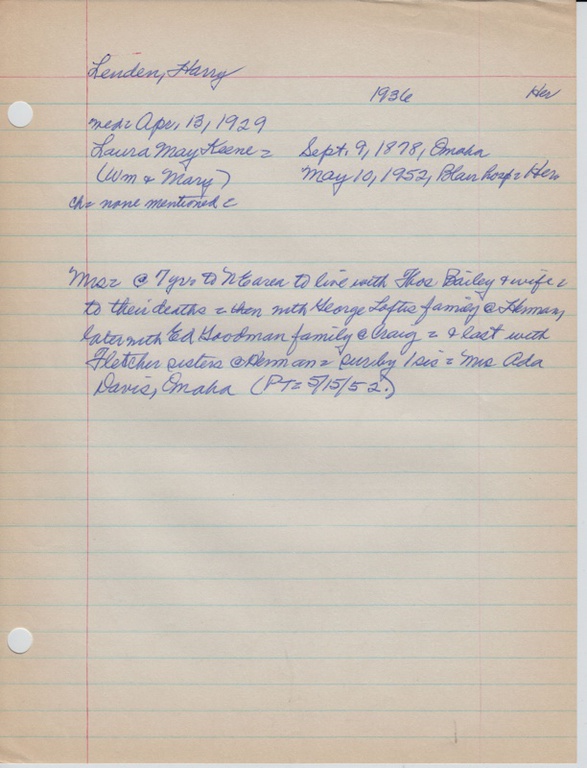 Lenden, Harry
1936 Her
med= Apr. 13, 1929
Laura May Keene = Sept. 9, 1878, Omaha
(Wm & Mary) May 10, 1952, Blair hosp = Her
ch= none mentioned =
Mrs= @ 7 yrs to NE area to live with Thos Bailey & wife =
to their deaths = then with George Loftus family @ Herman,
later with Ed Goodman family @ Craig = & last with
Fletcher sisters @ Herman = surv by 1 sis = Mrs Ada
Davis, Omaha (PT= 5/15/52.)